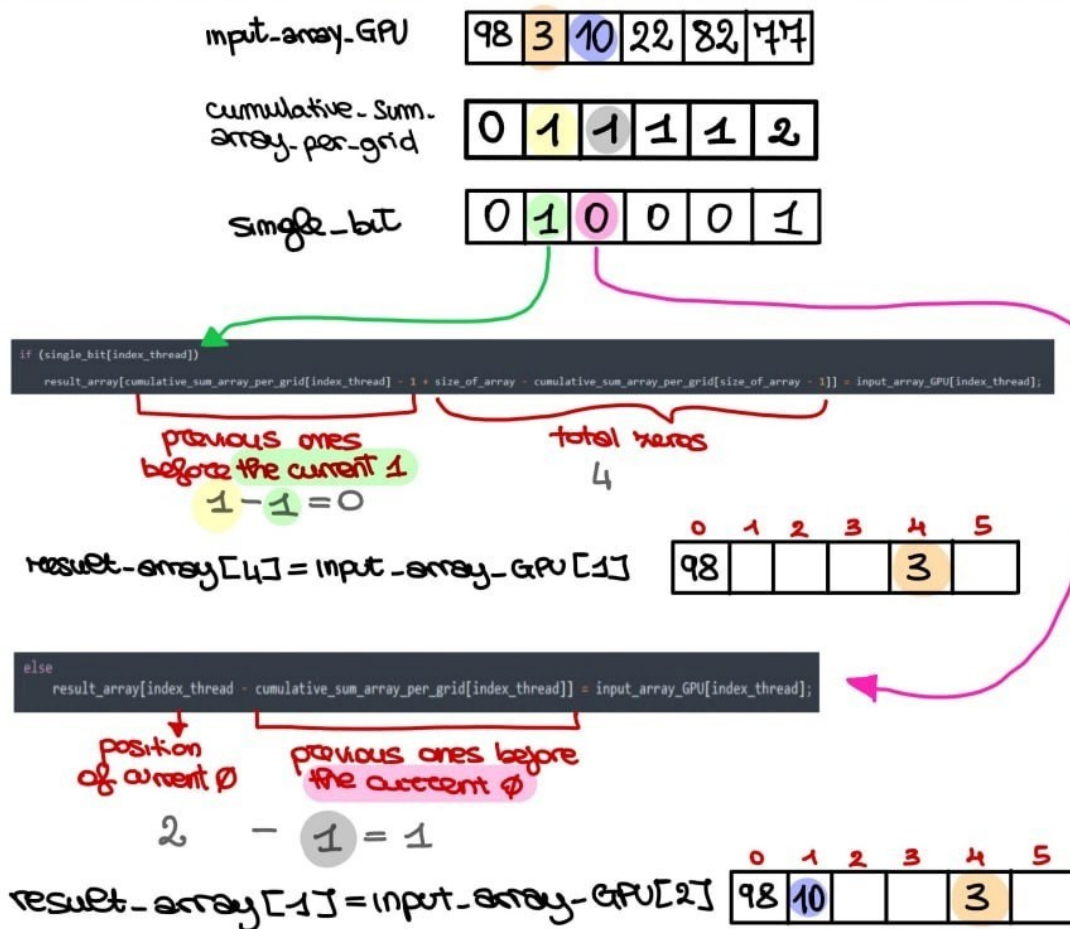 input_array_GPU 98 3 10 22 82 77
cumulative_sum_
array_per_grid 0 1 1 1 1 2
single_bit 0 1 0 0 0 1
if (single_bit[index_thread])
result_array[cumulative_sum_array_per_grid[index_thread] - 1 + size_of_array - cumulative_sum_array_per_grid[size_of_array - 1]] = input_array_GPU[index_thread];
previous ones
before the current 1
total zeros
1-1=0
4
0 1 2 3 4 5
result_array[4]=input_array_GPU[1] 98 3
else
result_array[index_thread - cumulative_sum_array_per_grid[index_thread]] = input_array_GPU[index_thread];
position
of current 0
previous ones before
the current 0
2 - 1 = 1
0 1 2 3 4 5
result_array[1]=input_array_GPU[2] 98 10 3